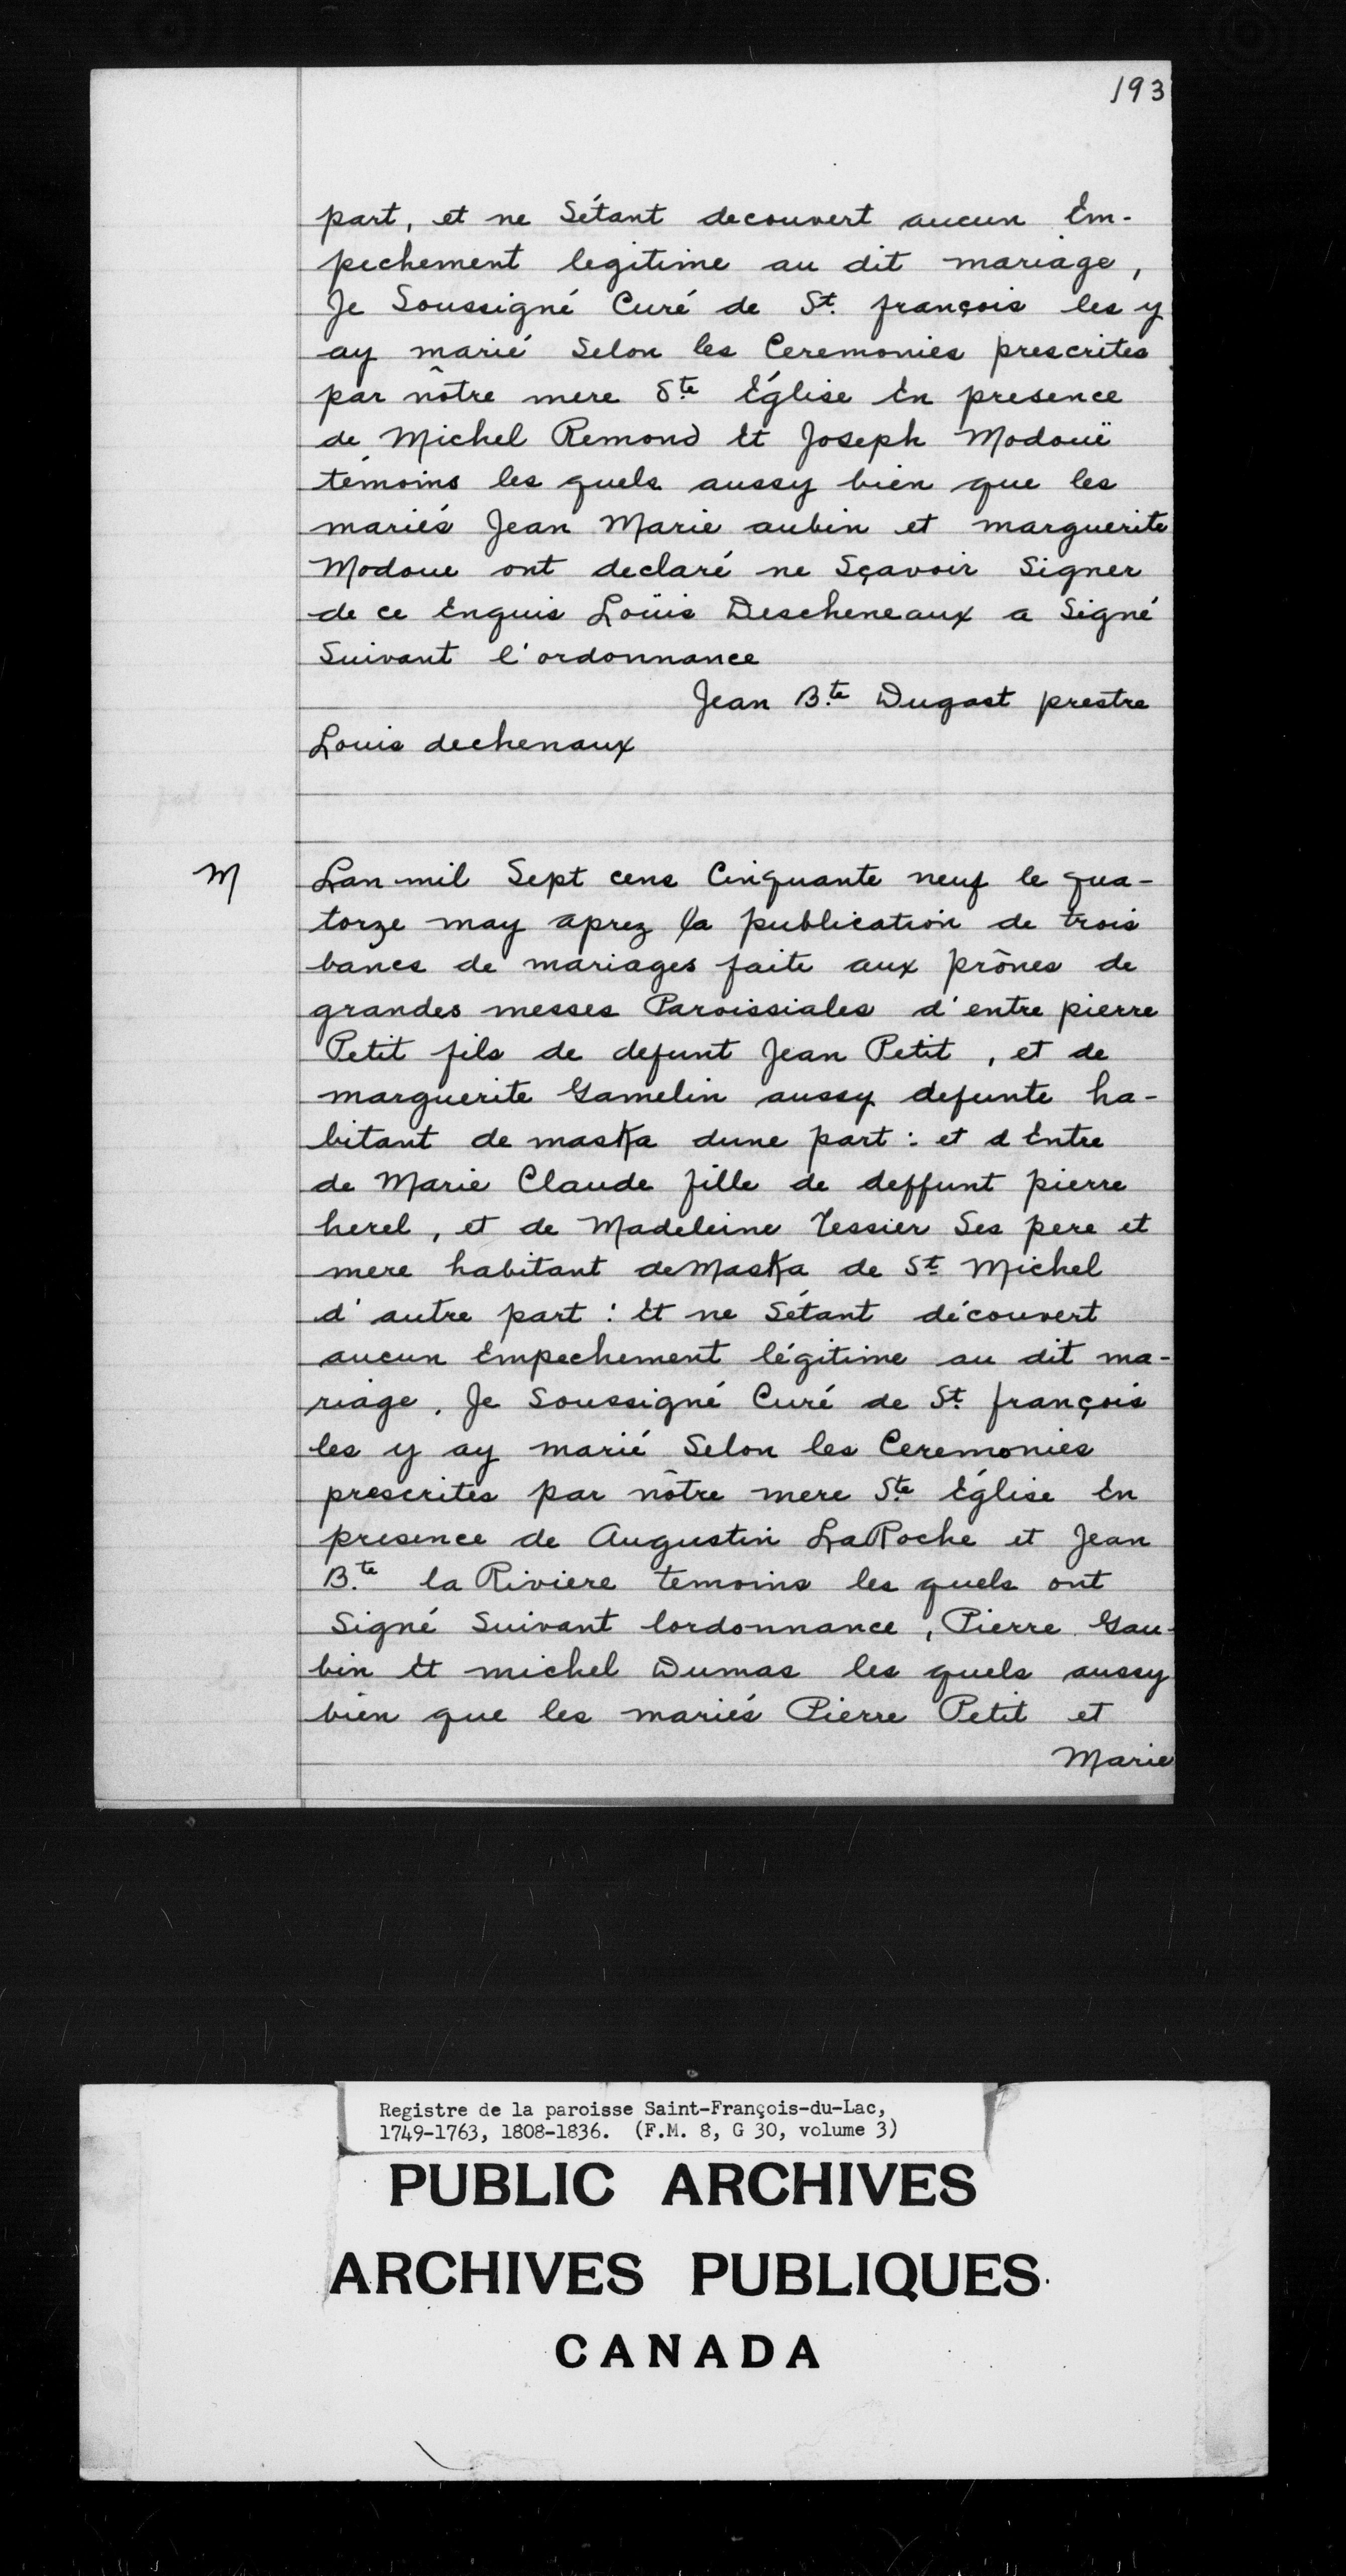 193
part, et ne Sétant decouvert aucun Em-
pechement legitime au dit mariage,
Je Soussigné Curé de St. françois les y
ay marié Selon les Ceremonies prescrites
par nôtre mere Ste Église En presence
de Michel Remond Et Joseph Modouë
témoins les quels aussy bien que les
mariés Jean Marie aubin et marguerite
Modoue ont declaré ne Sçavoir Signer
de ce Enquis Loüis Descheneaux a Signé
Suivant l'ordonnance
Jean B.te Dugast prestre
Louis dechenaux
M
Lan mil Sept cens Cinquante neuf le qua-
torze may aprez la publication de trois
bancs de mariages faite aux prônes de
grandes messes Paroissiales d'entre pierre
Petit fils de defunt Jean Petit, et de
marguerite Gamelin aussy defunte ha-
bitant de maska dune part: et d Entre
de Marie Claude fille de deffunt pierre
herel, et de Madeleine Tessier Ses pere et
mere habitant de Maska de St. Michel
d'autre part: Et ne Sétant découvert
aucun Empechement légitime au dit ma-
riage. Je Soussigné Curé de St. françois
les y ay marié Selon les Ceremonies
prescrites par nôtre mere Ste. Église En
presence de Augustin LaRoche et Jean
B.te la Riviere temoins les quels ont
Signé Suivant lordonnance, Pierre Gau-
bin Et michel Dumas les quels aussy
bien que les mariés Pierre Petit et
Marie
Registre de la paroisse Saint-François-du-Lac,
1749-1763, 1808-1836. (F.M. 8, G 30, volume 3)
PUBLIC ARCHIVES
ARCHIVES PUBLIQUES
CANADA